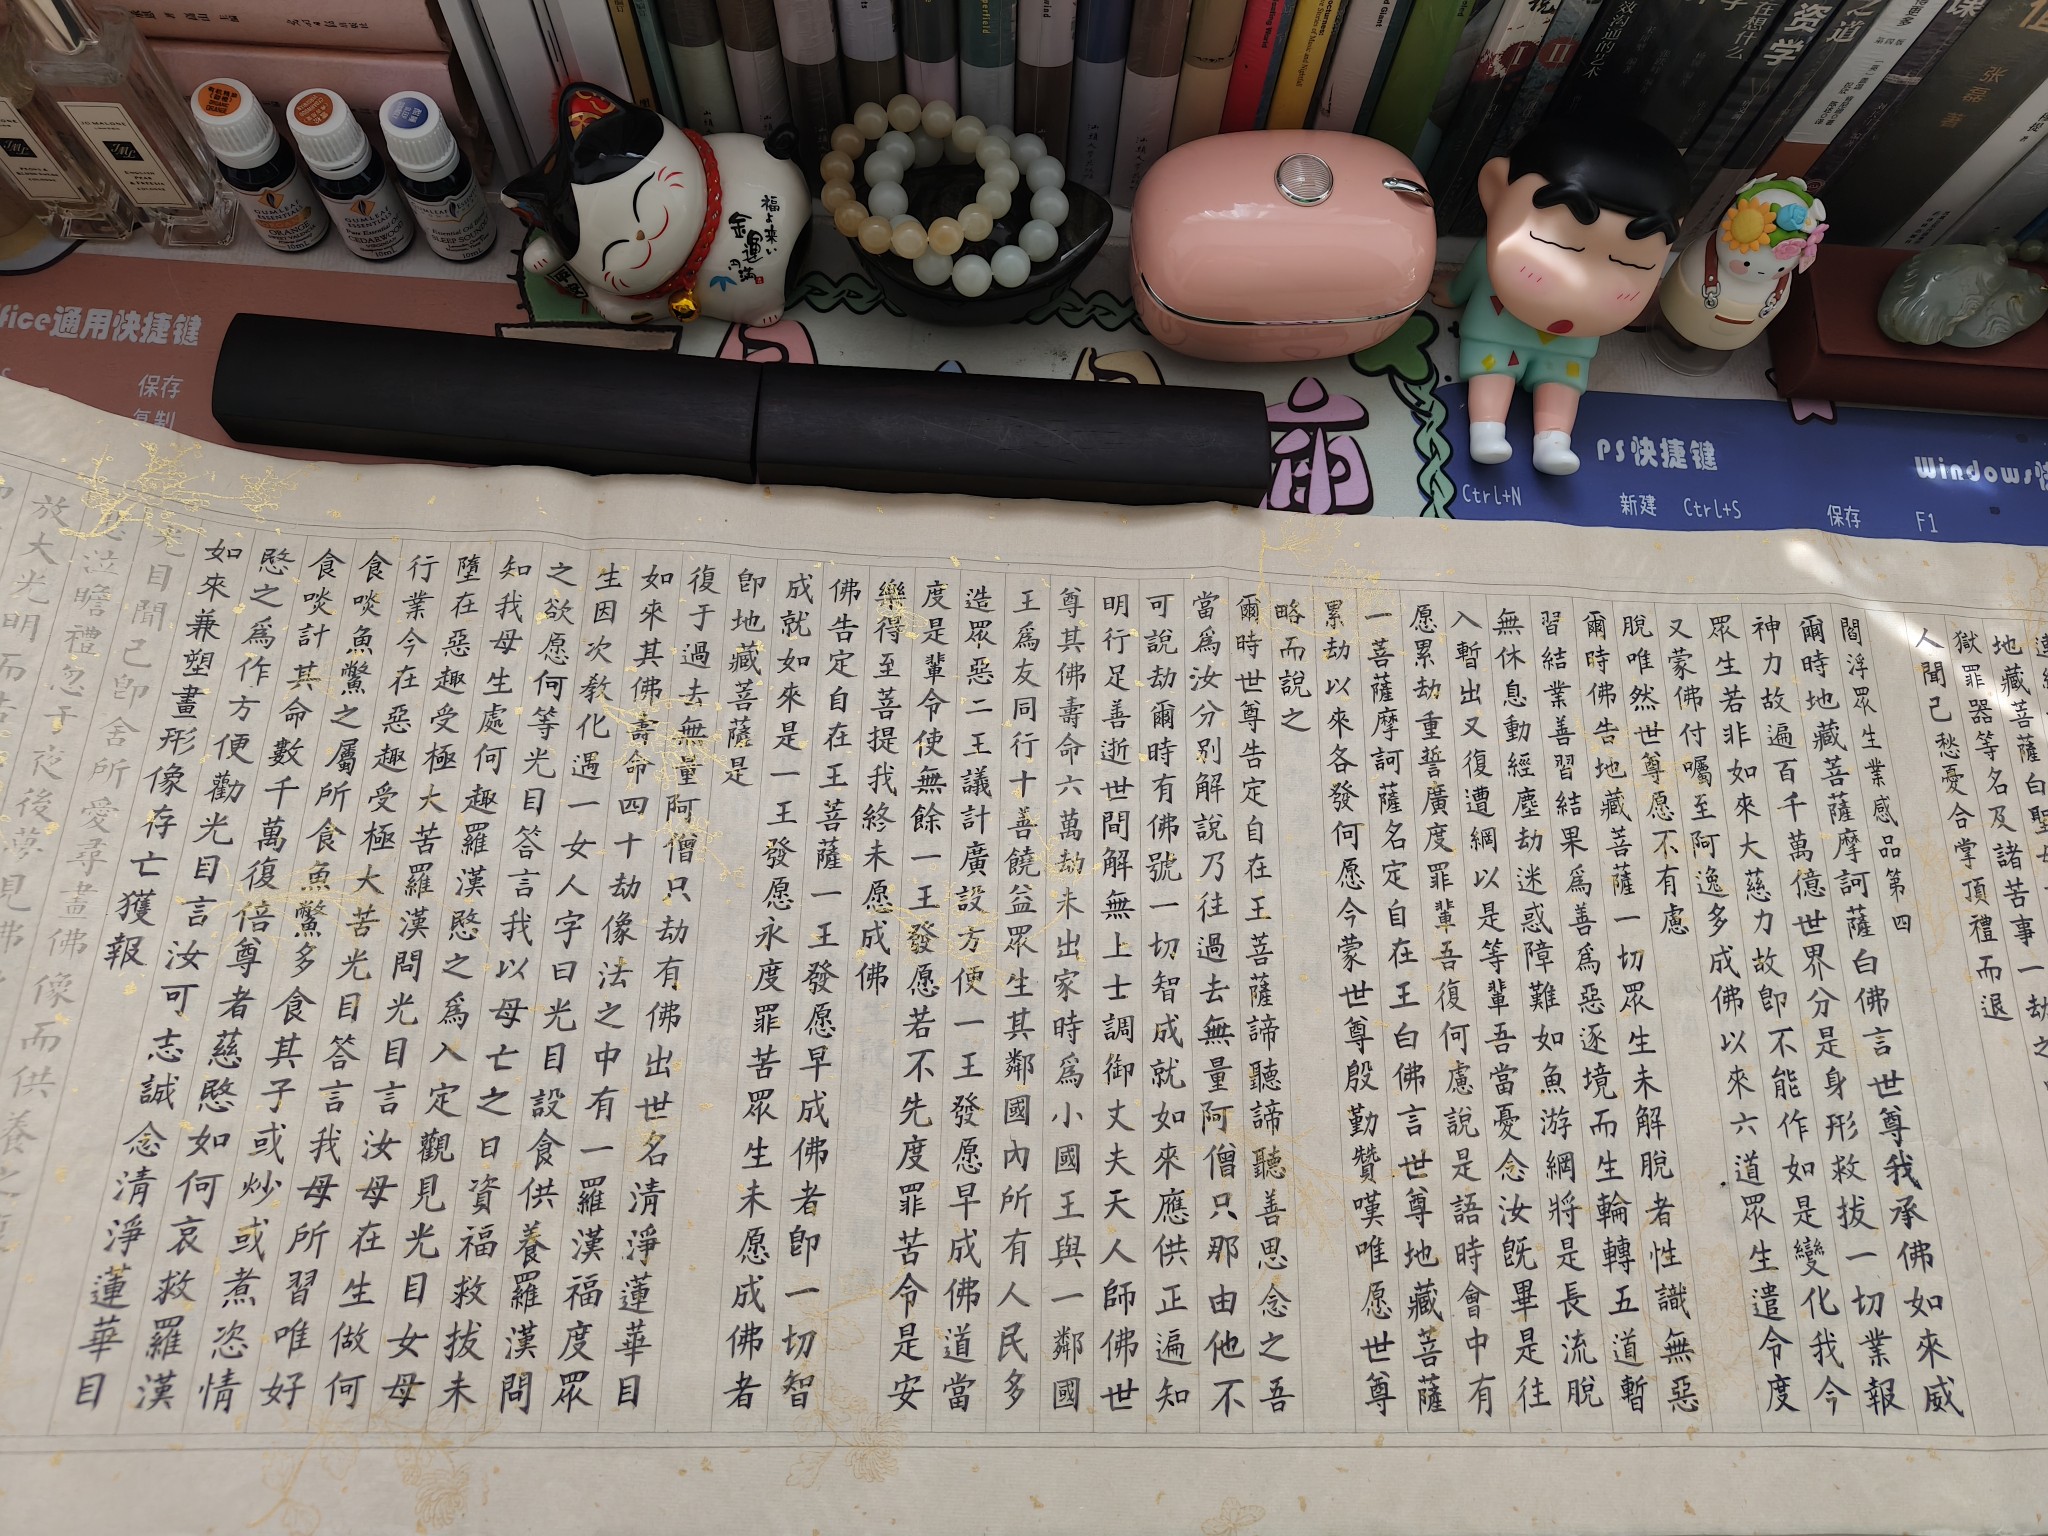 有机精油
ORGANIC
ORANGE
GUMLEAF
ESSENTIALS
ORANGE
10mL
GUMLEAF
ESSENTIALS
CEDARWOOD
10mL
GUMLEAF
SLEEP SOUND
10mL
JO MALONE
LONDON
ENGLISH
PEAR &
FREESIA
COLOGNE
福よ来い
金運
円満
效沟通的艺术
在想什么
资学
之道
张磊 著
I
II
fice通用快捷键
保存
复制
PS快捷键
Ctrl+N
新建
Ctrl+S
保存
Windows快
F1
地藏菩薩白聖母
獄罪器等名及諸苦事一劫之
人聞已愁憂合掌頂禮而退
閻浮眾生業感品第四
爾時地藏菩薩摩訶薩白佛言世尊我承佛如來威
神力故遍百千萬億世界分是身形救拔一切業報
眾生若非如來大慈力故即不能作如是變化我今
又蒙佛付囑至阿逸多成佛以來六道眾生遣令度
脫唯然世尊愿不有慮
爾時佛告地藏菩薩一切眾生未解脫者性識無惡
習結業善習結果為善為惡逐境而生輪轉五道暫
無休息動經塵劫迷惑障難如魚游網將是長流脫
入暫出又復遭網以是等輩吾當憂念汝既畢是往
愿累劫重誓廣度罪輩吾復何慮說是語時會中有
一菩薩摩訶薩名定自在王白佛言世尊地藏菩薩
累劫以來各發何愿今蒙世尊殷勤贊嘆唯愿世尊
略而說之
爾時世尊告定自在王菩薩諦聽諦聽善思念之吾
當為汝分別解說乃往過去無量阿僧只那由他不
可說劫爾時有佛號一切智成就如來應供正遍知
明行足善逝世間解無上士調御丈夫天人師佛世
尊其佛壽命六萬劫未出家時為小國王與一鄰國
王為友同行十善饒益眾生其鄰國內所有人民多
造眾惡二王議計廣設方便一王發愿早成佛道當
度是輩令使無餘一王發愿若不先度罪苦令是安
樂得至菩提我終未愿成佛
佛告定自在王菩薩一王發愿早成佛者即一切智
成就如來是一王發愿永度罪苦眾生未愿成佛者
即地藏菩薩是
復于過去無量阿僧只劫有佛出世名清淨蓮華目
如來其佛壽命四十劫像法之中有一羅漢福度眾
生因次教化遇一女人字曰光目設食供養羅漢問
之欲愿何等光目答言我以母亡之日資福救拔未
知我母生處何趣羅漢愍之為入定觀見光目女母
墮在惡趣受極大苦羅漢問光目言汝母在生做何
行業今在惡趣受極大苦光目答言我母所習唯好
食啖魚鱉之屬所食魚鱉多食其子或炒或煮恣情
食啖計其命數千萬復倍尊者慈愍如何哀救羅漢
愍之為作方便勸光目言汝可志誠念清淨蓮華目
如來兼塑畫形像存亡獲報
光目聞已即舍所愛尋畫佛像而供養之
泣瞻禮忽于夜後夢見佛
放大光明而